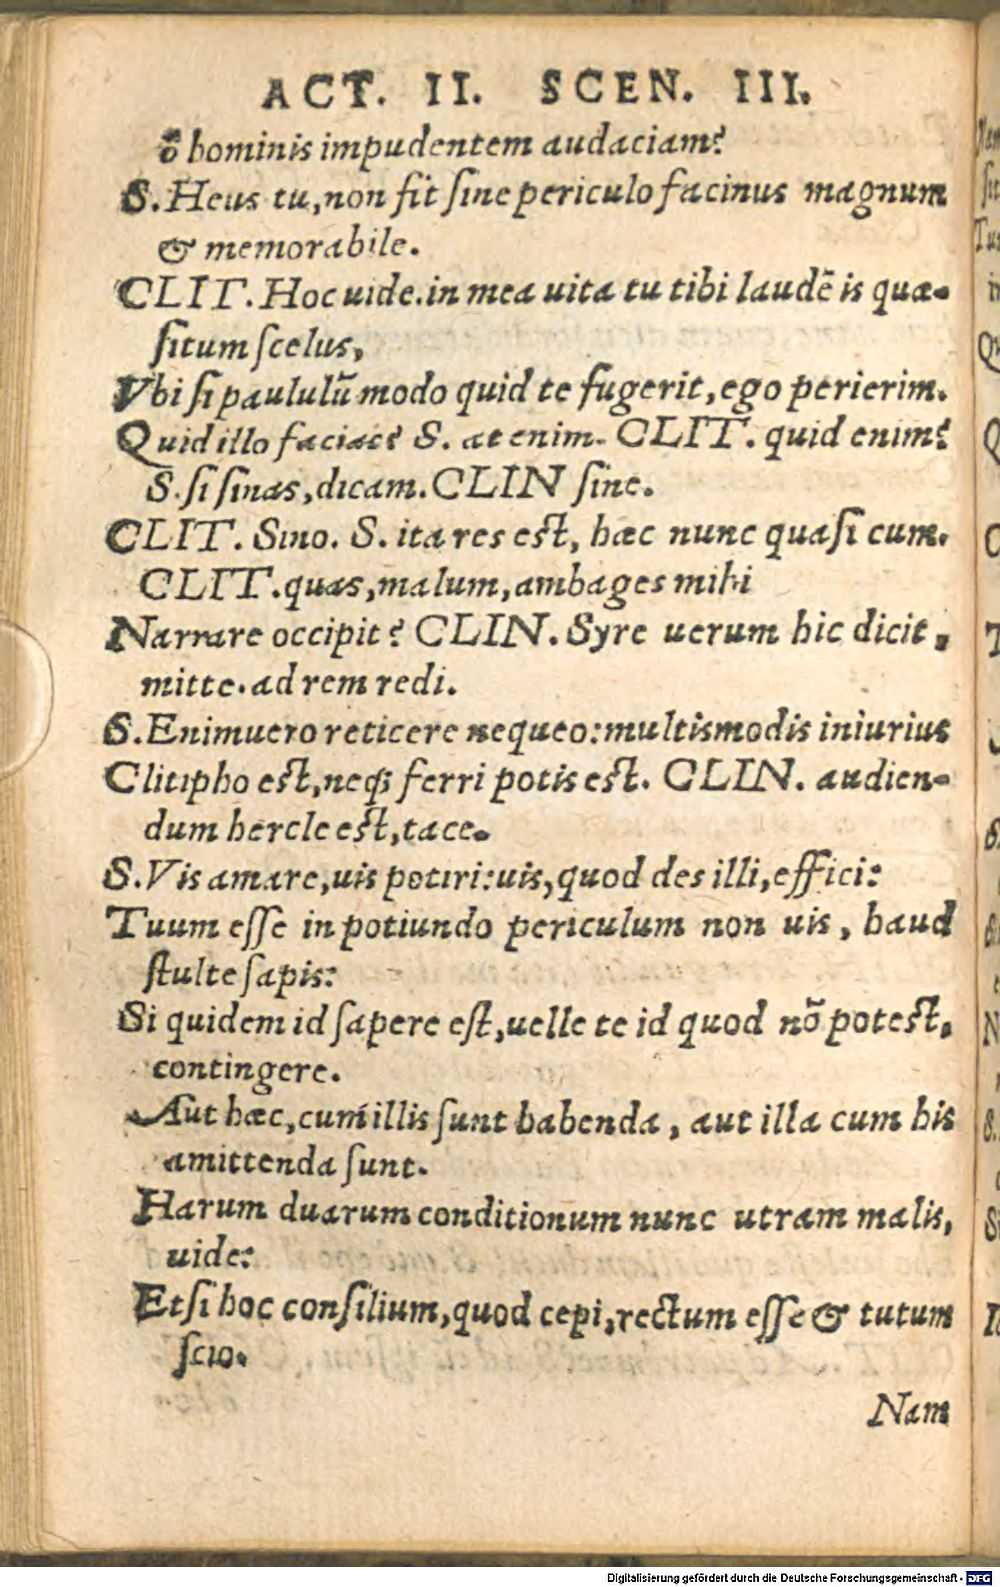 ACT. II. SCEN. III.
õ hominis impudentem audaciam?
S. Heus tu, non fit ſine periculo facinus magnum
& memorabile.
CLIT. Hoc uide. in mea uita tu tibi laudẽ is quæ-
ſitum ſcelus,
Vbi ſi paululũ modo quid te fugerit, ego perierim.
Quid illo facias? S. at enim. CLIT. quid enim?
S. ſi ſinas, dicam. CLIN ſine.
CLIT. Sino. S. ita res eſt, hæc nunc quaſi cum.
CLIT. quas, malum, ambages mihi
Narrare occipit? CLIN. Syre uerum hic dicit,
mitte. ad rem redi.
S. Enimuero reticere nequeo: multismodis iniurius
Clitipho est, neq; ferri potis est. CLIN. audien-
dum hercle est, tace.
S. Vis amare, uis potiri: uis, quod des illi, effici:
Tuum eſſe in potiundo periculum non uis, haud
ſtulte ſapis:
Si quidem id ſapere eſt, uelle te id quod nõ potest,
contingere.
Aut hæc, cum illis ſunt habenda, aut illa cum his
amittenda ſunt.
Harum duarum conditionum nunc utram malis,
uide:
Etſi hoc conſilium, quod cepi, rectum eſſe & tutum
ſcio.
Nam
Digitalisierung gefördert durch die Deutsche Forschungsgemeinschaft - DFG